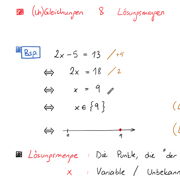 (Un)Gleichungen & Lösungsmengen
Bsp. 2x - 5 = 13 / +5
⇔ 2x = 18 / :2
⇔ x = 9
⇔ x ∈ {9}
⇔ 0 9
Lösungsmenge : Die Punkte, die "der
x : Variable / Unbekann